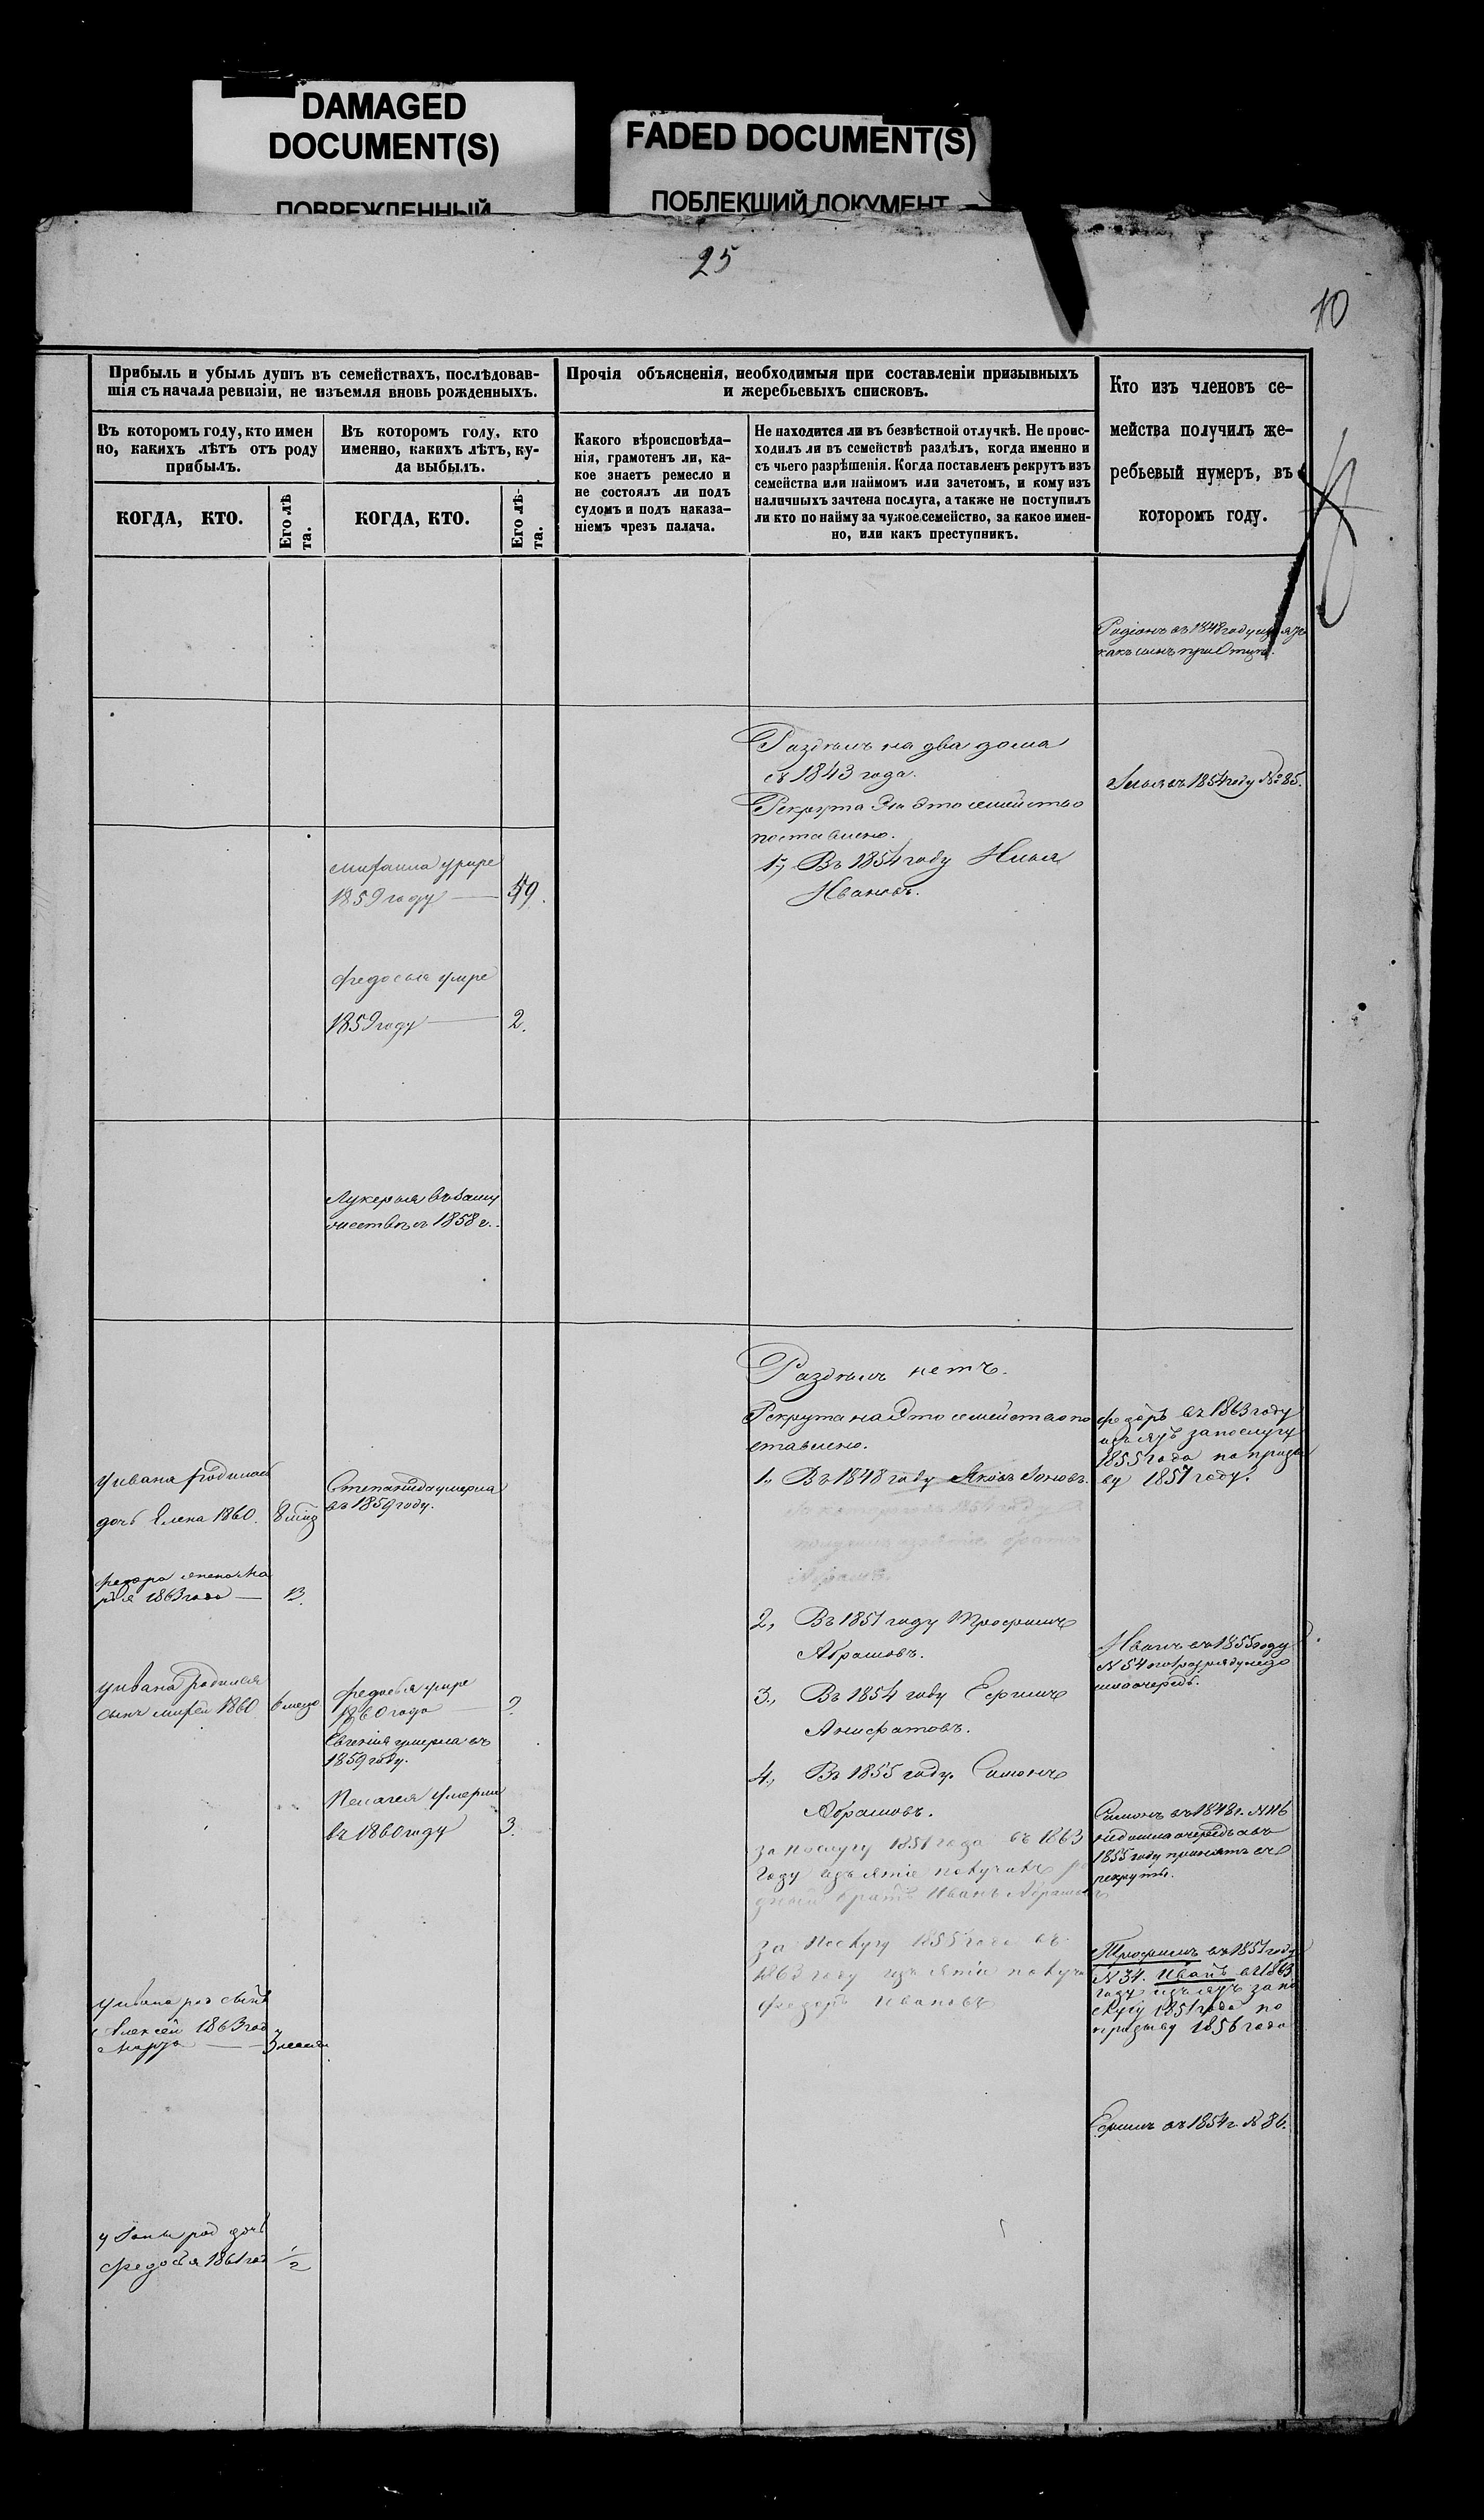 DAMAGED
DOCUMENT(S)
ПОВРЕЖДЕННЫЙ
FADED DOCUMENT(S)
ПОБЛЕКШИЙ ДОКУМЕНТ
25
10
Прибыль и убыль душъ въ семействахъ, послѣдовав-
шія съ начала ревизіи, не изъемля вновь рожденныхъ.
Въ которомъ году, кто имен
но, какихъ лѣтъ отъ роду
прибылъ.
КОГДА, КТО.
Его лѣ
та.
Въ которомъ году, кто
именно, какихъ лѣтъ, ку-
да выбылъ.
КОГДА, КТО.
Его лѣ-
та.
Прочія объясненія, необходимыя при составленіи призывныхъ
и жеребьевыхъ списковъ.
Какого вѣроисповѣда-
нія, грамотенъ ли, ка-
кое знаетъ ремесло и
не состоялъ ли подъ
судомъ и подъ наказа-
ніемъ чрезъ палача.
Не находится ли въ безвѣстной отлучкѣ. Не проис-
ходилъ ли въ семействѣ раздѣлъ, когда именно и
съ чьего разрѣшенія. Когда поставленъ рекрутъ изъ
семейства или наймомъ или зачетомъ, и кому изъ
наличныхъ зачтена послуга, а также не поступилъ
ли кто по найму за чужое семейство, за какое имен-
но, или какъ преступникъ.
Кто изъ членовъ се-
мейства получилъ же-
ребьевый нумеръ, въ
которомъ году.
Родіонъ въ 1848 году
какъ сынъ при Отцѣ.
Раздѣлъ на два дома
съ 1843 года.
Рекрута на это семейство
поставлено.
1, Въ 1854 году Илья
Ивановъ.
Илья въ 1854 году № 85.
Михаила умре
1859 году — 49.
Федосья умре
1859 году — 2.
Лукерья въ замуж
чествѣ с 1858 г.
Раздѣлъ нетъ.
Рекрута на Это семейство по
ставлено.
1, Въ 1848 году Яковъ Іоновъ.
въ 1854 году
братъ
Абрамъ.
2, Въ 1851 году Трофимъ
Абрамовъ.
3, Въ 1854 году Ефимъ
Анифатовъ.
4, Въ 1855 году. Симонъ
Абрамовъ.
за послугу 1851 года въ 1863
году изъятіе получилъ ро
дной братъ Иванъ Абрамовъ
за Послугу 1855 года въ
1863 году изъятіе получи
федоръ Ивановъ
федоръ въ 1863 году
изъятъ за послугу
1855 года по призы
ву 1857 году.
Иванъ въ 1855 году
N 54
очередь.
Симонъ въ 1848 г. N 116
недошла очередь а въ
1855 году принятъ въ
рекруты.
Трофимъ въ 1851 году
N 34. Иванъ въ 1863
году изъятъ за по
слугу 1851 года по
призыву 1856 года
Ефимъ въ 1854 г. № 86.
У ивана родилась
дочь Елена 1860.
Степанида умерла
въ 1859 году.
федора
1863 года — 13.
У ивана родился
сынъ 1860
федосья умре
1860 года — 2
Евгенія умерла въ
1859 году.
Пелагея умерла
въ 1860 году 3.
У ивана род сынъ
Алексей 1863 год
Марта —
у род дочь
Федосья 1861 год 1/2